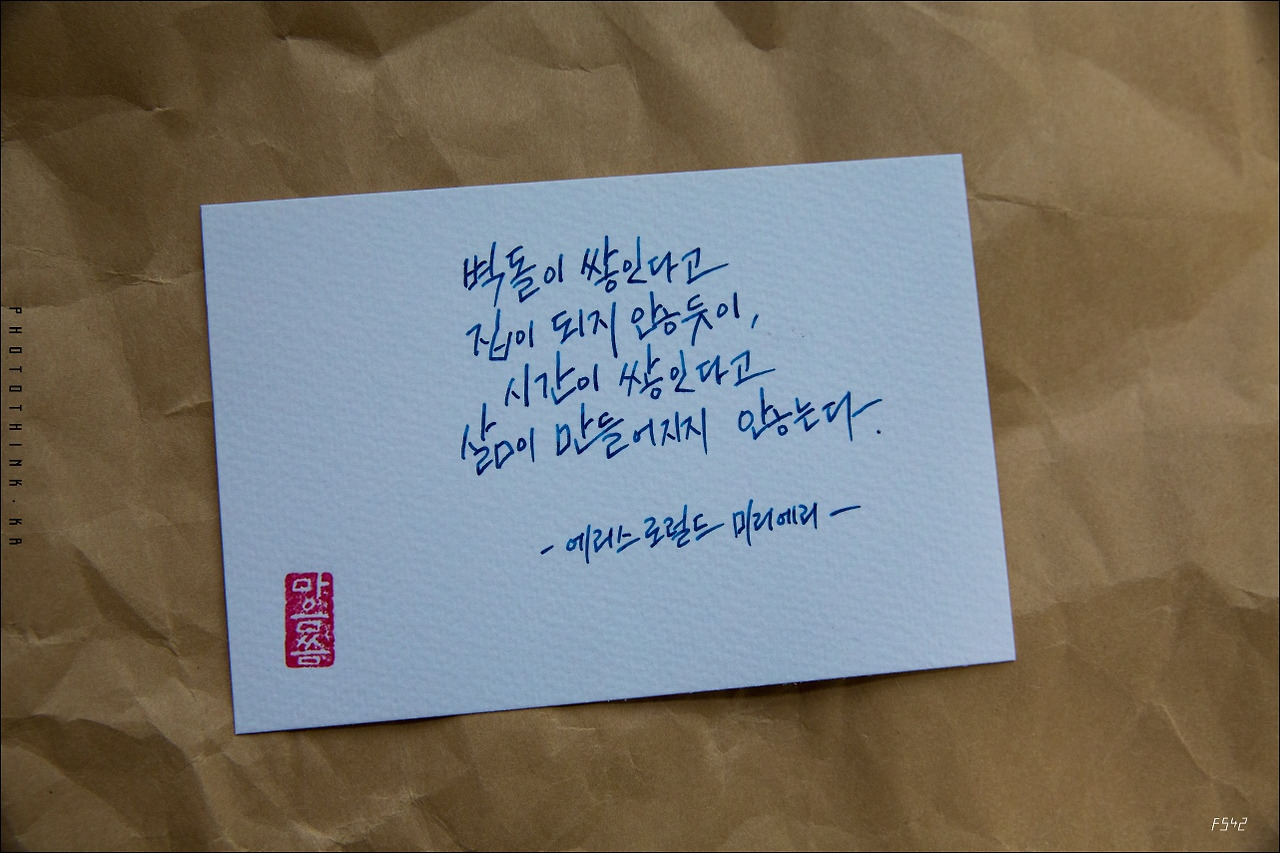 벽돌이 쌓인다고
집이 되지 않듯이,
시간이 쌓인다고
삶이 만들어지지 않는다.
- 에리스 로럴드 미리에리 -
PHOTOTHINK.KA
FS42